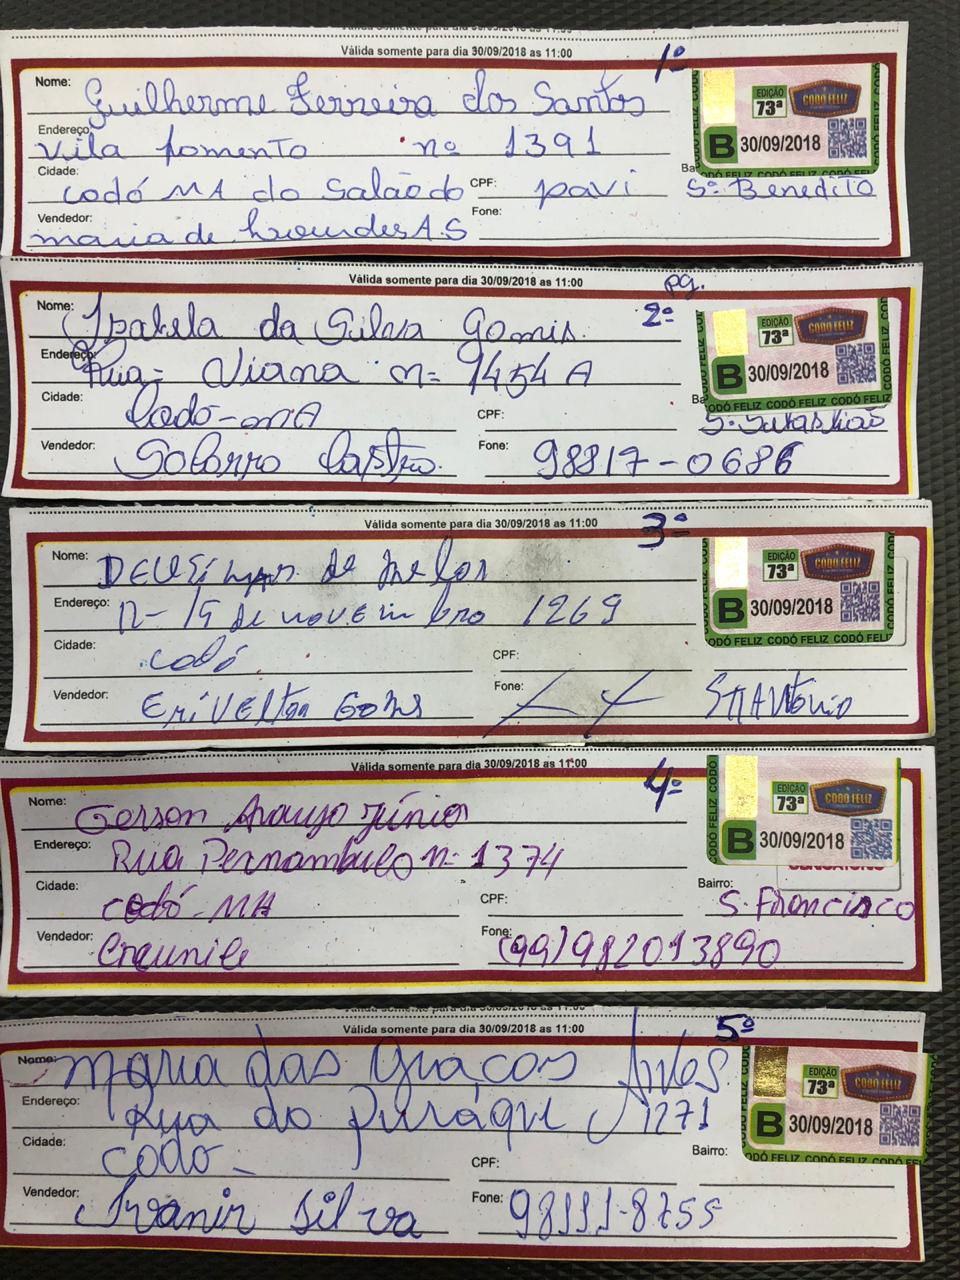 Válida somente para dia 30/09/2018 as 11:00
1º
Nome: Guilherme Ferreira dos Santos
Endereço: Vila fomento nº 1391
Cidade: codó MA do Salão do CPF: pavi Ba S. Benedito
Vendedor: maria de Lourdes A.S Fone:
EDIÇÃO
73ª
CODÓ FELIZ
B 30/09/2018
CODÓ FELIZ CODÓ FELIZ
Válida somente para dia 30/09/2018 as 11:00
pg.
2º
Nome: Izabela da Silva Gomis
Endereço: Rua - Viana n= 1454 A
Cidade: Codó-MA CPF: Ba S. Sebastião
Vendedor: Socorro Castro. Fone: 98817-0686
EDIÇÃO
73ª
CODÓ FELIZ
B 30/09/2018
CODÓ FELIZ CODÓ FELIZ CODÓ FELIZ
Válida somente para dia 30/09/2018 as 11:00
3º
Nome: de melos
Endereço: R- 15 de novembro 1269
Cidade: codó CPF:
Vendedor: Erivelton Goms Fone: StAntônio
EDIÇÃO
73ª
CODÓ FELIZ
B 30/09/2018
CODÓ FELIZ CODÓ FELIZ CODÓ FELIZ
Válida somente para dia 30/09/2018 as 11:00
4º
Nome: Gerson Araujo Júnior
Endereço: Rua Pernambuco n- 1374
Cidade: codó-MA CPF: Bairro: S. Francisco
Vendedor: Craunile Fone: (99)982013890
EDIÇÃO
73ª
CODÓ FELIZ
B 30/09/2018
CODÓ FELIZ CODÓ
Válida somente para dia 30/09/2018 as 11:00
5º
Nome: Maria das Graças Alves
Endereço: Rua do Puráque 1271
Cidade: codó- CPF: Bairro:
Vendedor: Ivanir Silva Fone: 98111-8755
EDIÇÃO
73ª
CODÓ FELIZ
B 30/09/2018
CODÓ FELIZ CODÓ FELIZ CODÓ FELIZ